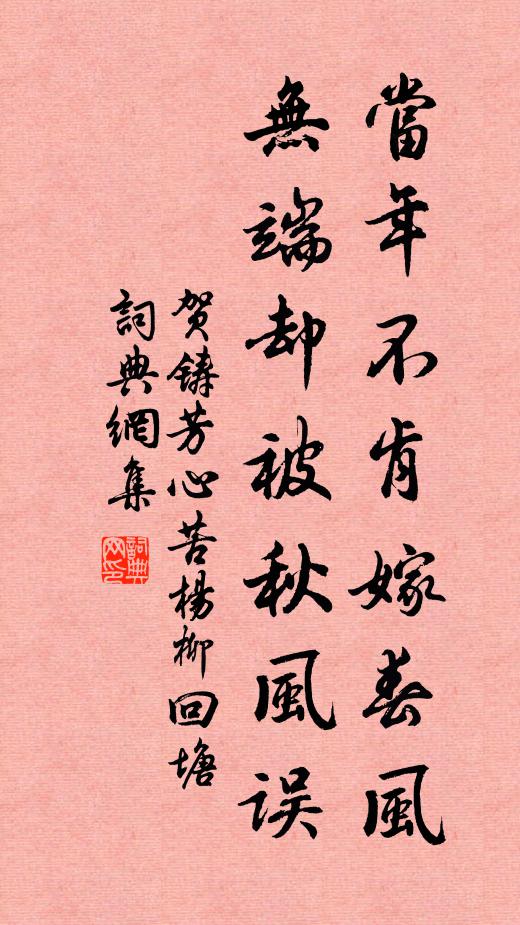 當年不肯嫁春風
無端却被秋風误
贺鋳芳心苦楊柳回塘
詞典網集
詞典
网印